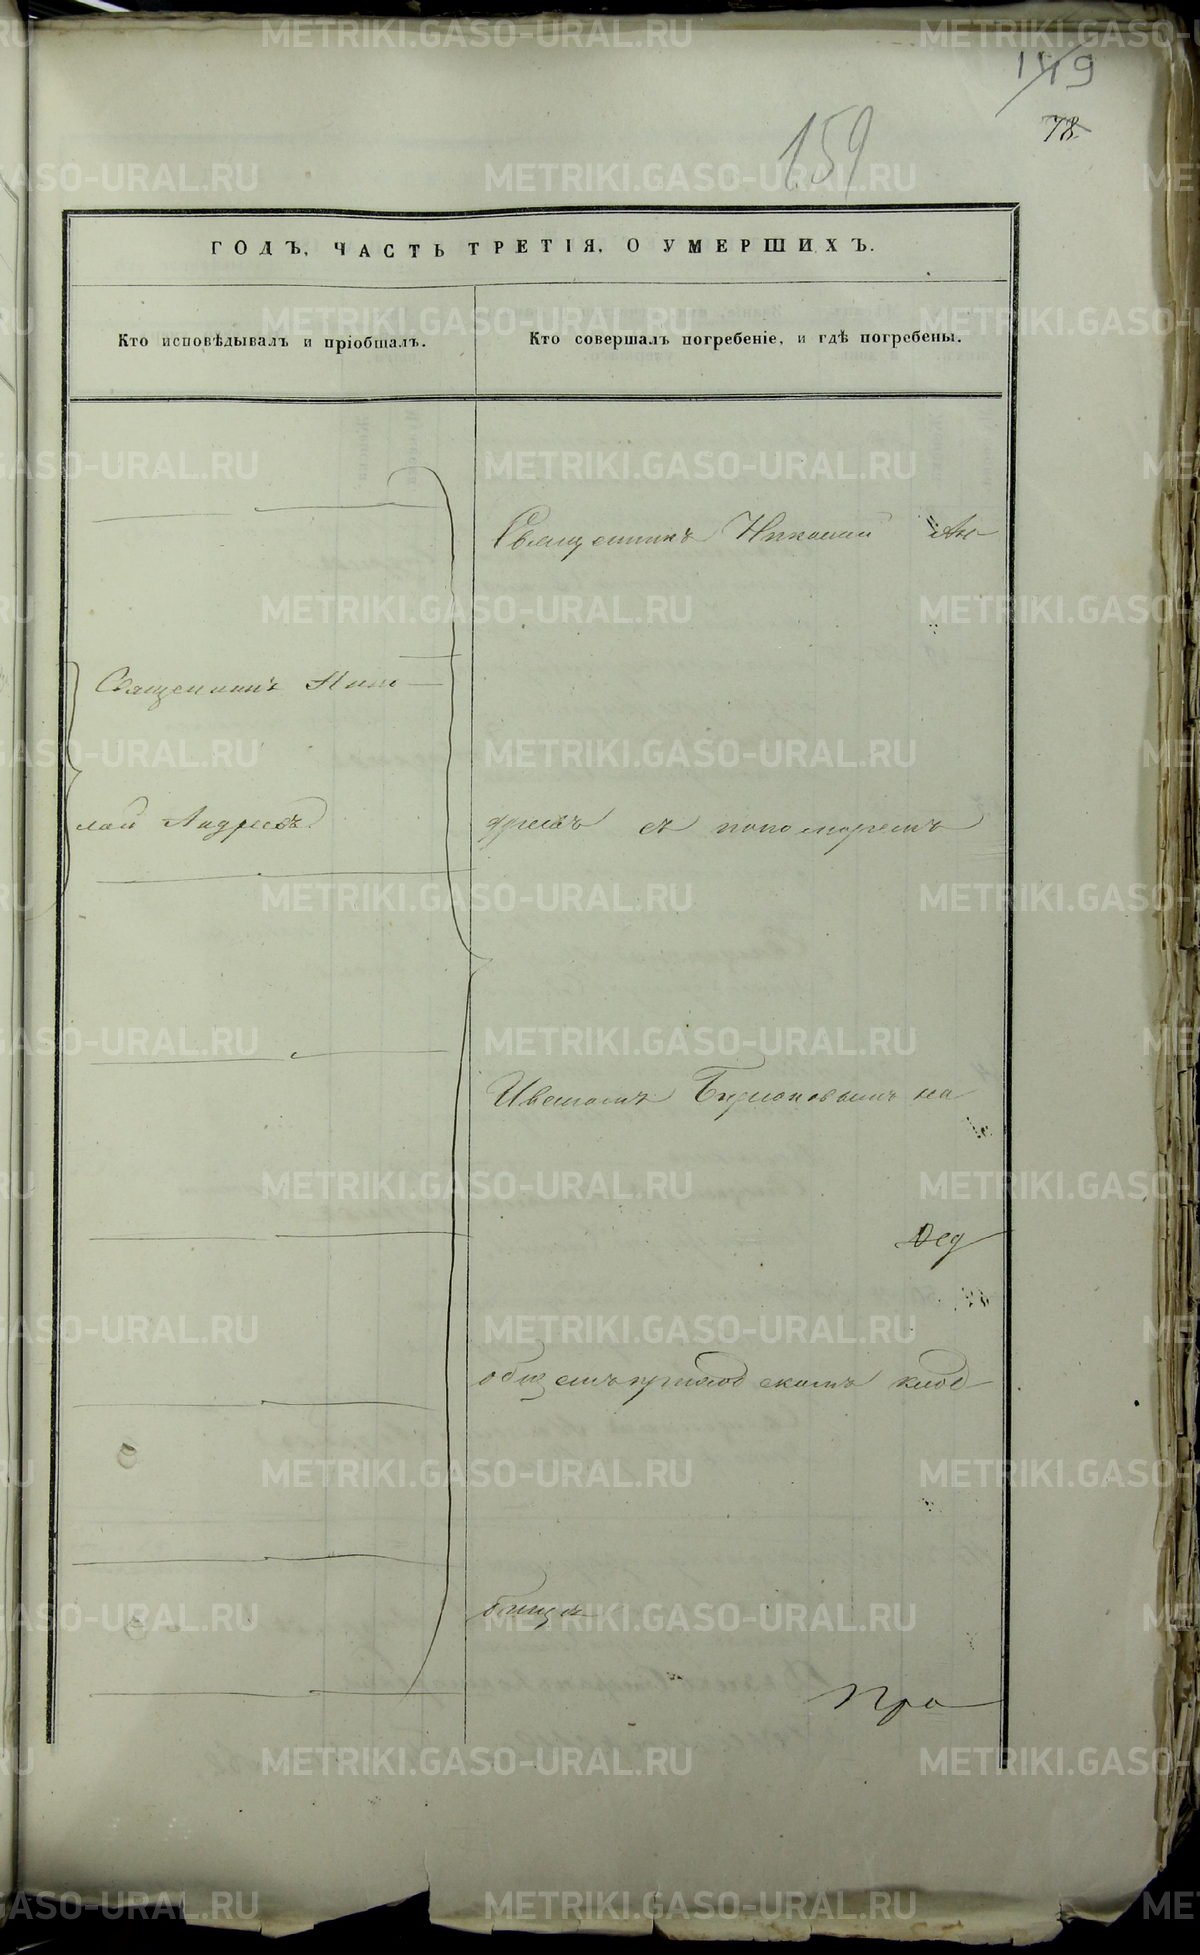 149
78
159
ГОДЪ, ЧАСТЬ ТРЕТІЯ, О УМЕРШИХЪ.
Кто исповѣдывалъ и пріобщалъ.
Кто совершалъ погребеніе, и гдѣ погребены.
Священникъ Николай Ан-
Священникъ Нико-
лай Андреевъ
дреевъ съ пономаремъ
Иваномъ на
общемъ приходскомъ клад-
бищѣ
METRIKI.GASO-URAL.RU